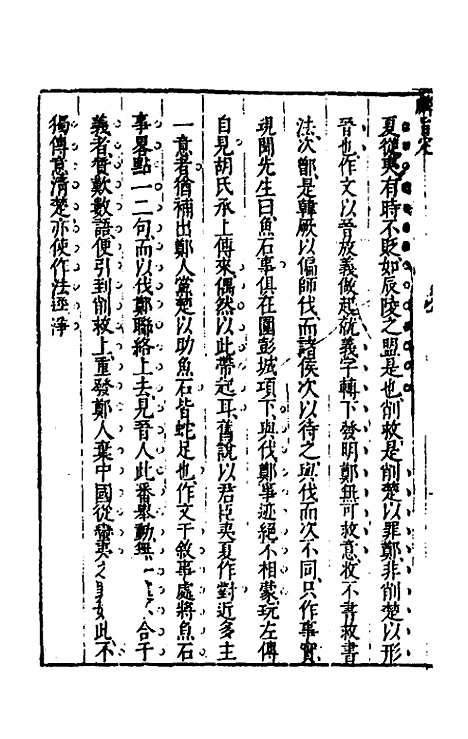 夏從夷有時不貶如辰陵之盟是也削救是削楚以罪鄭非削楚以形
晉也作文以晉放義做起就義字轉下發明鄭無可救意收不書救書
法次鄫是韓厥以偏師伐而諸侯次以待之與伐而次不同只作事實
現聞先生曰魚石事俱在圍彭城項下與伐鄭事迹絕不相蒙玩左傳
自見胡氏承上傳來偶然以此帶起耳舊說以君臣夷夏作對近多主
一意者猶補出鄭人黨楚以助魚石皆蛇足也作文于敘事處將魚石
事畧點一二句而以伐鄭聯絡上去見晉人此番舉動無一 合于
義者實歎數語便引到削救上重發鄭人棄中國從 夷之 如此不
獨傳意清楚亦使作法逕淨